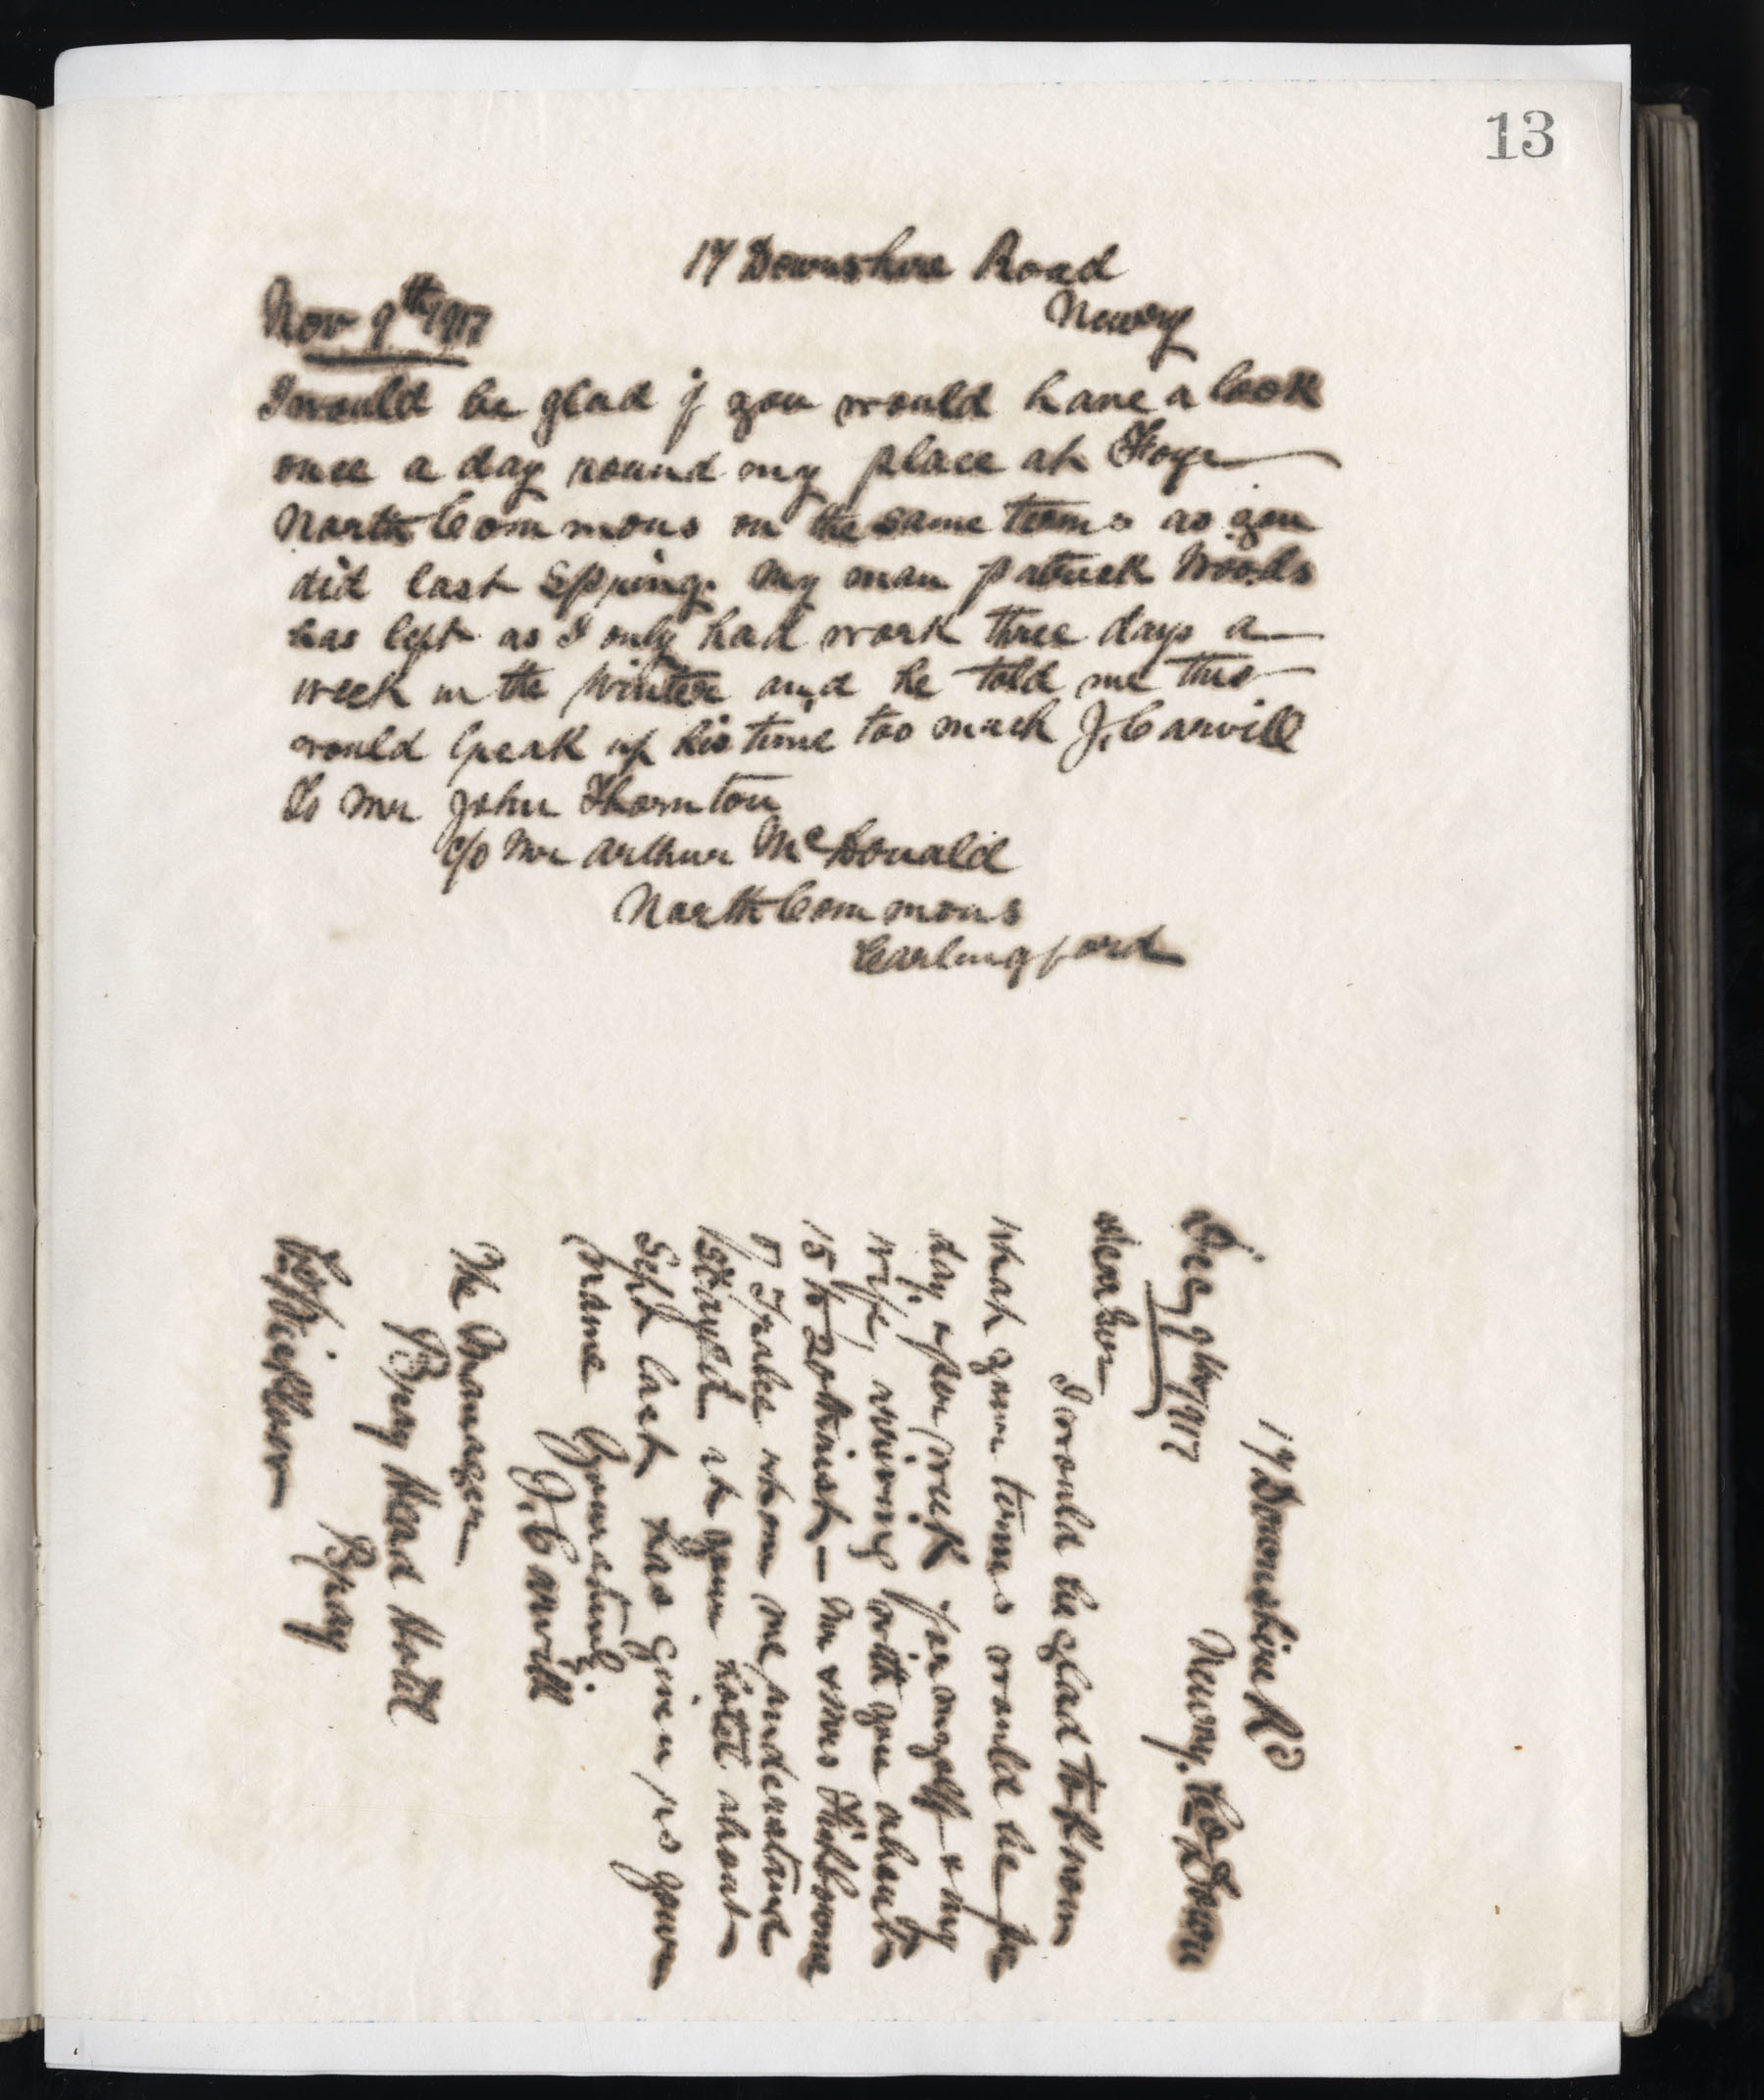 13
17 Downshire Road
Newry
Nov 9th 1917
I would be glad if you would have a look
once a day round my place at
North Commons on the same terms as you
did last Spring. My man Patrick Woods
has left as I only had work three days a
week in the Winter and he told me this
would break up his time too much J. Carvill
To Mr John Thornton
c/o Mr Arthur McDonald
North Commons
Carlingford
17 Downshire Rd
Newry. Co Down
9th 1917
Dear Sir
I would be glad to know
what your terms would be per
day & per week for myself & my
wife, arriving with you about
15 to 20th inst — Mr & Mrs
of Tralee whom we understand
stayed at your hotel about
Sept last has given us your
name Yours truly
J. Carvill
The Manager
Bray Head Hotel
Bray
Co Wicklow